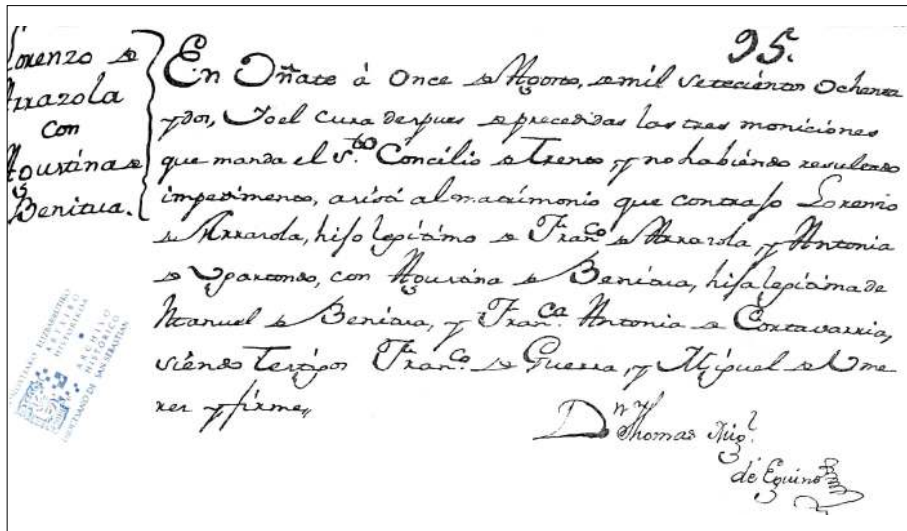 95.
Lorenzo de
Arrazola
con
Agustína de
Benitua.
En Oñate à Once de Agosto, de mil Setecientos Ochenta
y dos, Yo el Cura despues de precedidas las tres moniciones
que manda el S.to Concilio de Trento, y no habiendo resultado
impedimento, asistí al matrimonio que contrajo Lorenzo
de Arrazola, hijo lepítimo de Fran.co de Arrazola, y Antonia
de Ugartondo, con Agustina de Benitua, hija lepitima de
Manuel de Benitua, y Fran.ca Antonia de Cortavarria,
siendo Testigos Fran.co de Guerra, y Miguel de Ume
rez y firme,,
Dn Thomas Mig.l
de Eguino
ARCHIVO
HISTORICO
DIOCESANO DE SAN SEBASTIAN